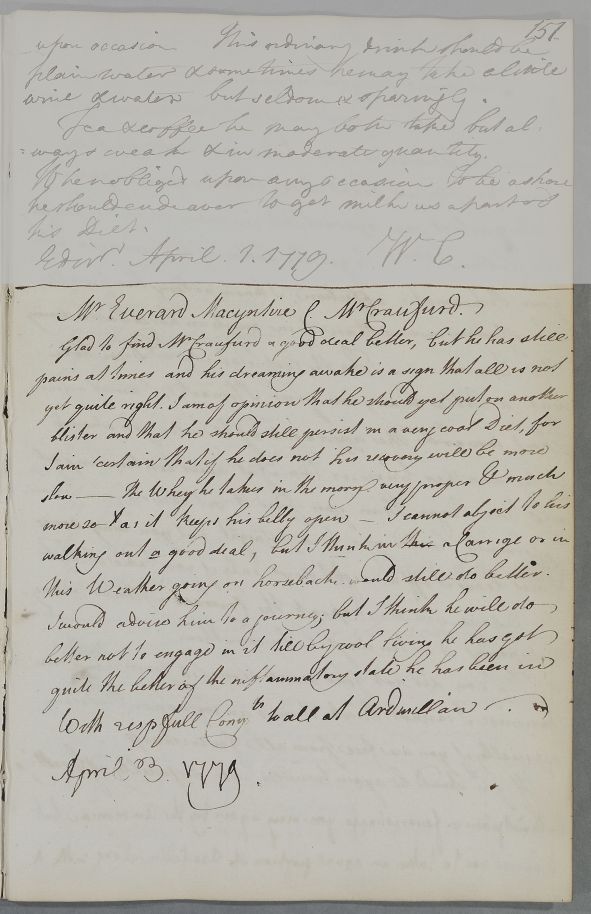 151
upon occasion This ordinary drink should be
plain water & sometimes he may take a little
wine & water but seldom & sparingly.
Tea & coffee he may both take but al
:ways weak & in moderate quantity.
When obliged upon any occasion to be ashore
he should endeavor to get milk as a part of
his Diet.
Edinr. April. 1. 1779. W. C.
Mr Everard Macyntire C. Mr Craufurd.
Glad to find Mr Craufurd a good deal better, but he has still
pains at times and his dreaming awake is a sign that all is not
yet quite right. I am of opinion that he should yet put on another
blister and that he should still persist in a very cool Diet, for
I am certain that if he does not his recovery will be more
slow — The Whey he takes in the morng. very proper & much
more so as it keeps his belly open — I cannot object to his
walking out a good deal, but I think in a Carrige or in
this Weather going on horseback would still do better.
I would advise him to a journey; but I think he will do
better not to engage in it till by cool living he has got
quite the better of the inflammatory state he has been in
With respfull Compts to all at Ardmillan
April. 3. 1779.